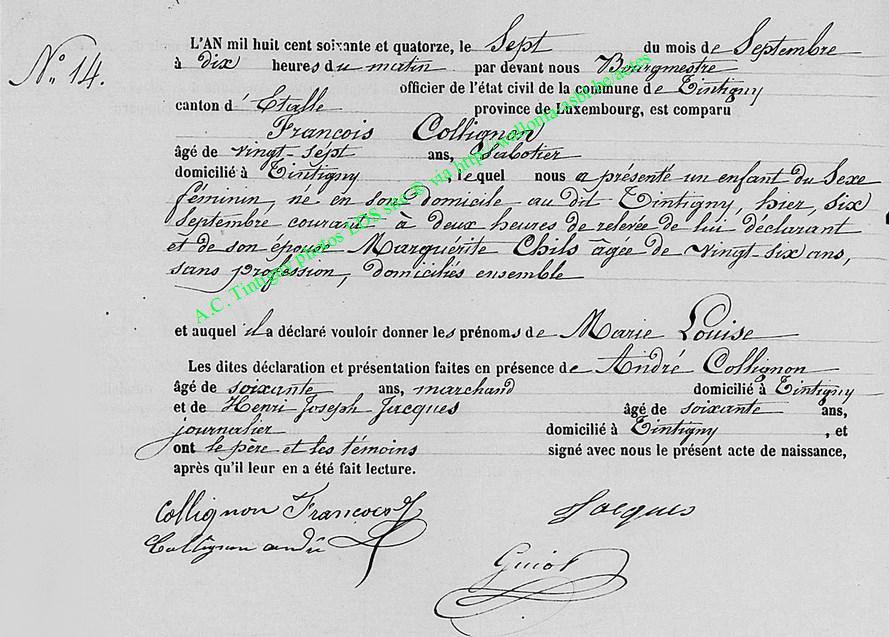 N.° 14.
L'AN mil huit cent soixante et quatorze, le Sept du mois de Septembre
à dix heures du matin par devant nous Bourgmestre
officier de l'état civil de la commune de Tintigny
canton d'Etalle province de Luxembourg, est comparu
François Collignon
âgé de vingt-sept ans, Sabotier
domicilié à Tintigny, lequel nous a présenté un enfant du Sexe
féminin, né en son domicile au dit Tintigny, hier, six
Septembre courant à deux heures de relevée de lui déclarant
et de son épouse Marguérite Chils âgée de vingt-six ans,
sans profession, domiciliés ensemble
et auquel il a déclaré vouloir donner les prénoms de Marie Louise
Les dites déclaration et présentation faites en présence de André Collignon
âgé de soixante ans, marchand domicilié à Tintigny
et de Henri Joseph Jacques âgé de soixante ans,
journalier domicilié à Tintigny, et
ont le père et les témoins signé avec nous le présent acte de naissance,
après qu'il leur en a été fait lecture.
Collignon François Jacques
Collignon andré
Guiot
A.C. Tintigny photos LDS
via http://wallonia.asbl.be/actes